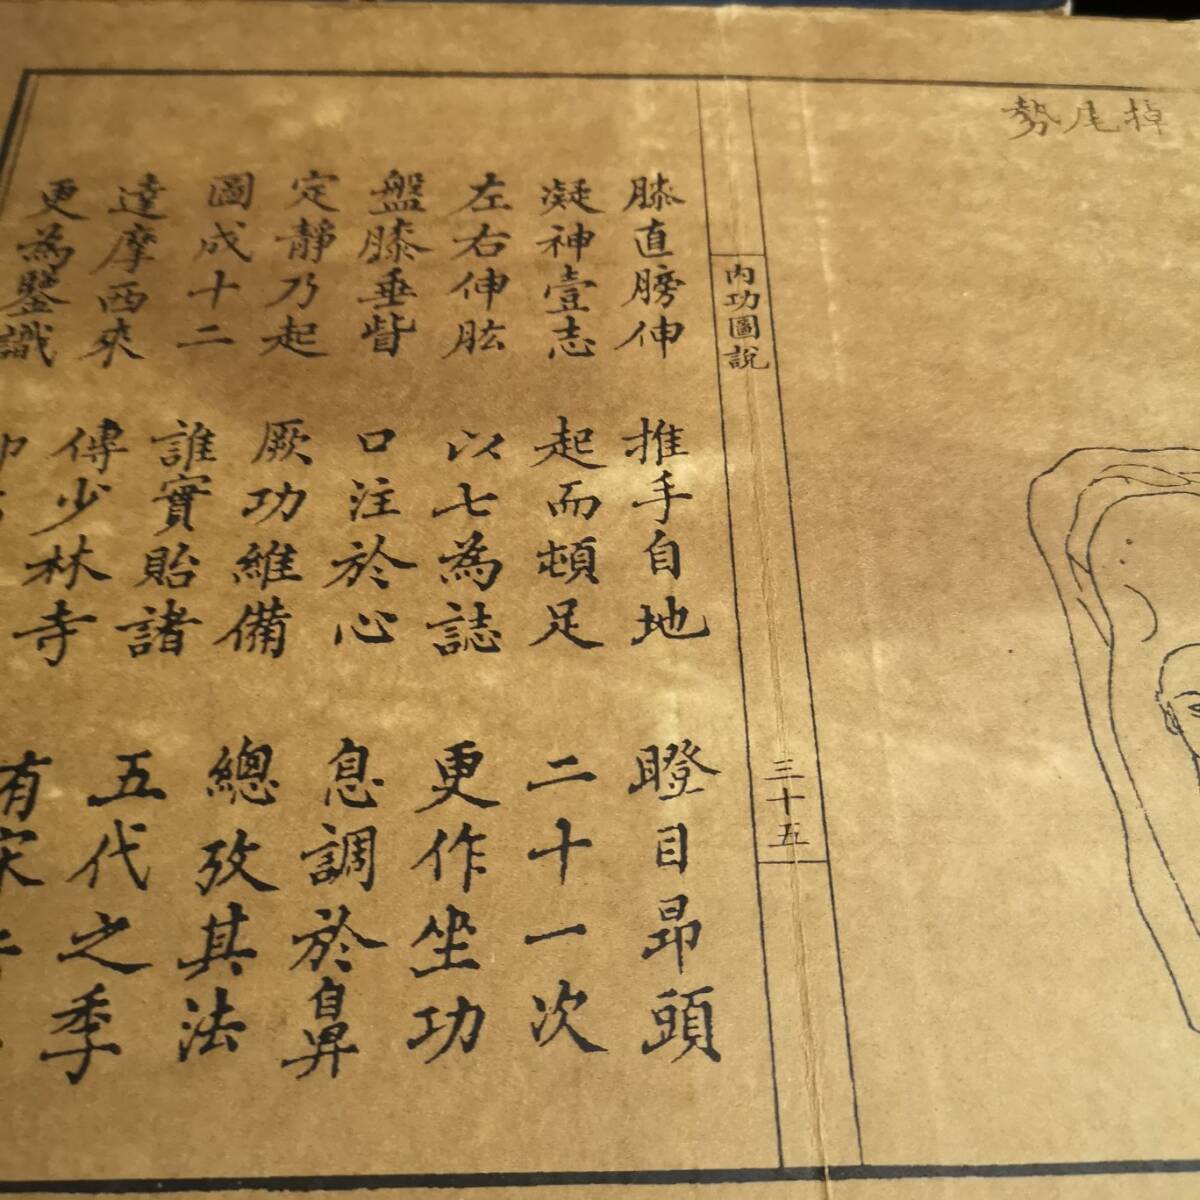 掉尾勢
內功圖說
三十五
膝直膀伸　推手自地　瞪目昂頭
凝神壹志　起而頓足　二十一次
左右伸肱　以七為誌　更作坐功
盤膝垂眥　口注於心　息調於鼻
定靜乃起　厥功維備　總攷其法
圖成十二　誰實貽諸　五代之季
達摩西來　傳少林寺　有宋
更為鑒識